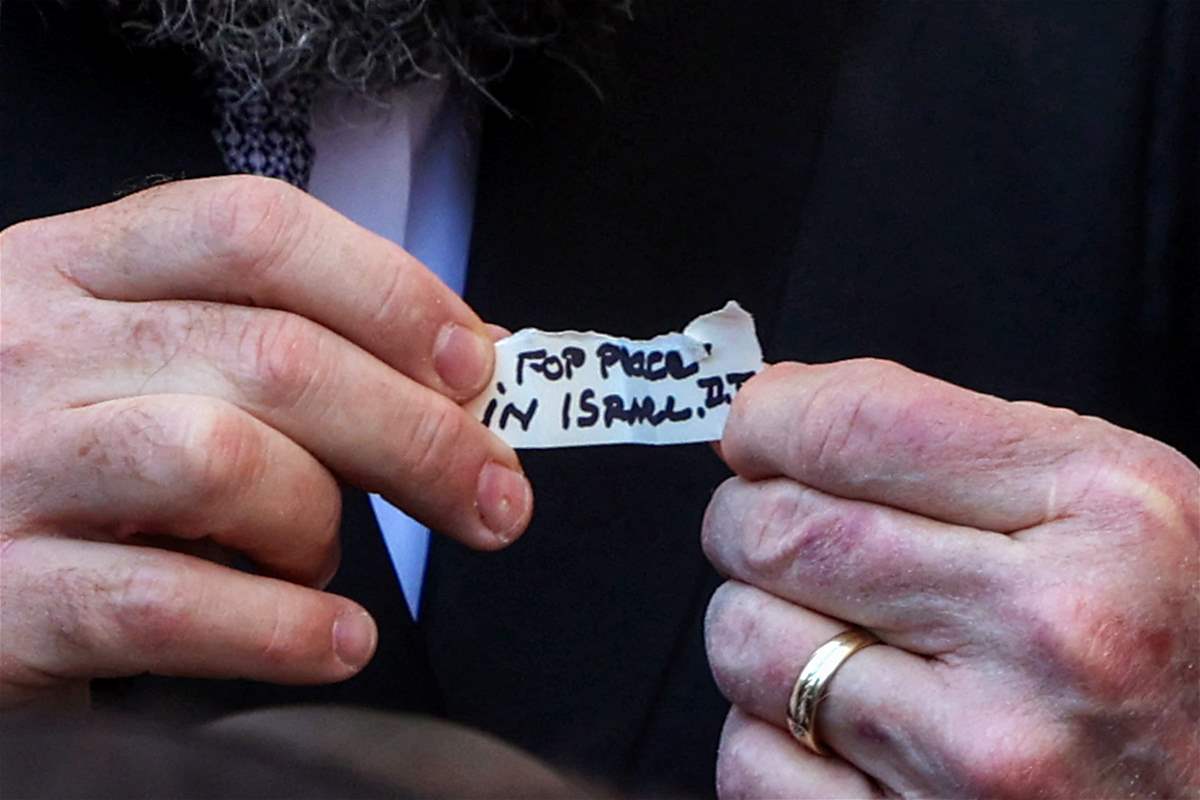 . FOR PEACE
IN ISRAEL. D.T